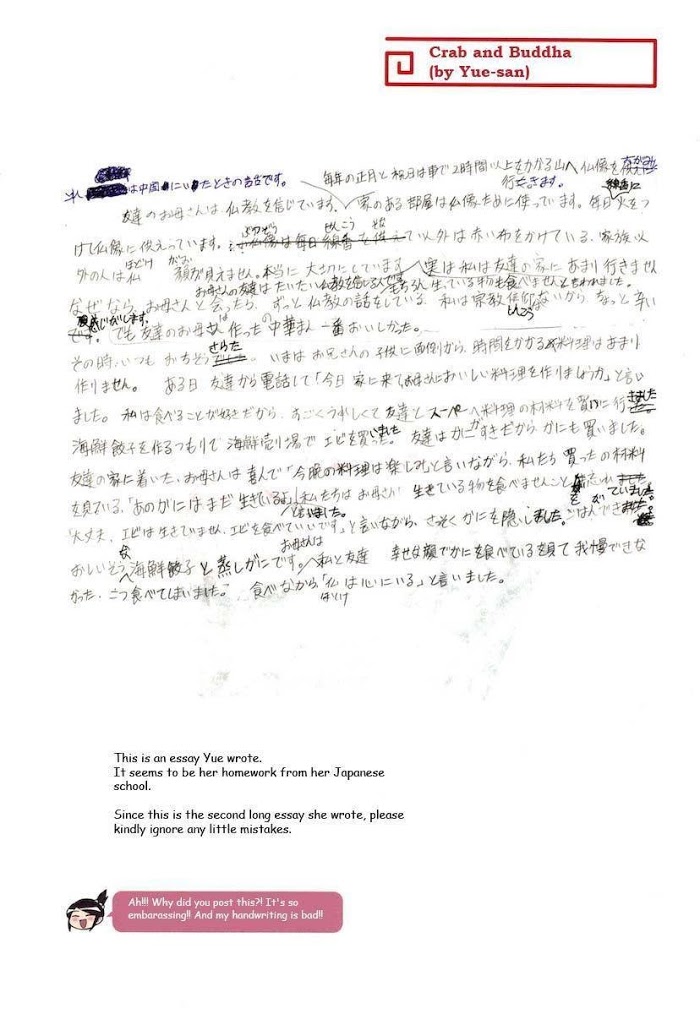 Crab and Buddha
(by Yue-san)
毎年の正月と祝日は車で2時間以上をかかる山へ仏像を
は中国にいたときの話です。
行きます。
友達のお母さんは仏教を信じています。家のある部屋は仏像ために使っています。毎日火をつ
けて仏像に供えっています。
て以外は赤い布をかけている、家族以
外の人は私 顔が見えません。本当に大切にしています 実は私は友達の家にあまり行きませ
お母さんの友達はたいたい仏教を信じる人で
生ている物も食べませんと言われました。
なぜなら、お母さんと会ったら、ずっと仏教の話をしている、私は宗教
ないから、
感じがします。
でも友達のお母さん作った中華まん一番おいしかった。
その時いつもおちそう
いまはお兄さんの子供に面倒から、時間をかかる料理はあまり
作りません。 ある日 友達から電話して「今日家に来てお母さんにおいしい料理を作りましょうか」と言い
ました。私は食べることが好きだから、すごくうれしくて友達とスーパーへ料理の材料を買いに行きました
海鮮餃子を作るつもりで海鮮売り場でエビを買いました 友達はかにがすきだからかにも買いました。
友達の家に着いた、お母さんは喜んで「今晩の料理は楽しむ」と言いながら、私たち買ったの材料
を見ている、「あのかにはまだ生きているよ」私たちはお母さん 生きている物を食べませんこと
と言いました。
ていました。
大丈夫、エビは生きていません、エビを食べていいです」と言いながら、さっそくかにを隠しました。ごはんでき
お母さんは
おいしそうな海鮮餃子と蒸しがにです。私と友達 幸せな顔でかにを食べているを見て我慢できな
かった、二つ食べてしまいました。 食べながら「仏は心にいる」と言いました。
ほとけ
This is an essay Yue wrote.
It seems to be her homework from her Japanese
school.
Since this is the second long essay she wrote, please
kindly ignore any little mistakes.
Ah!!! Why did you post this?! It's so
embarassing!! And my handwriting is bad!!